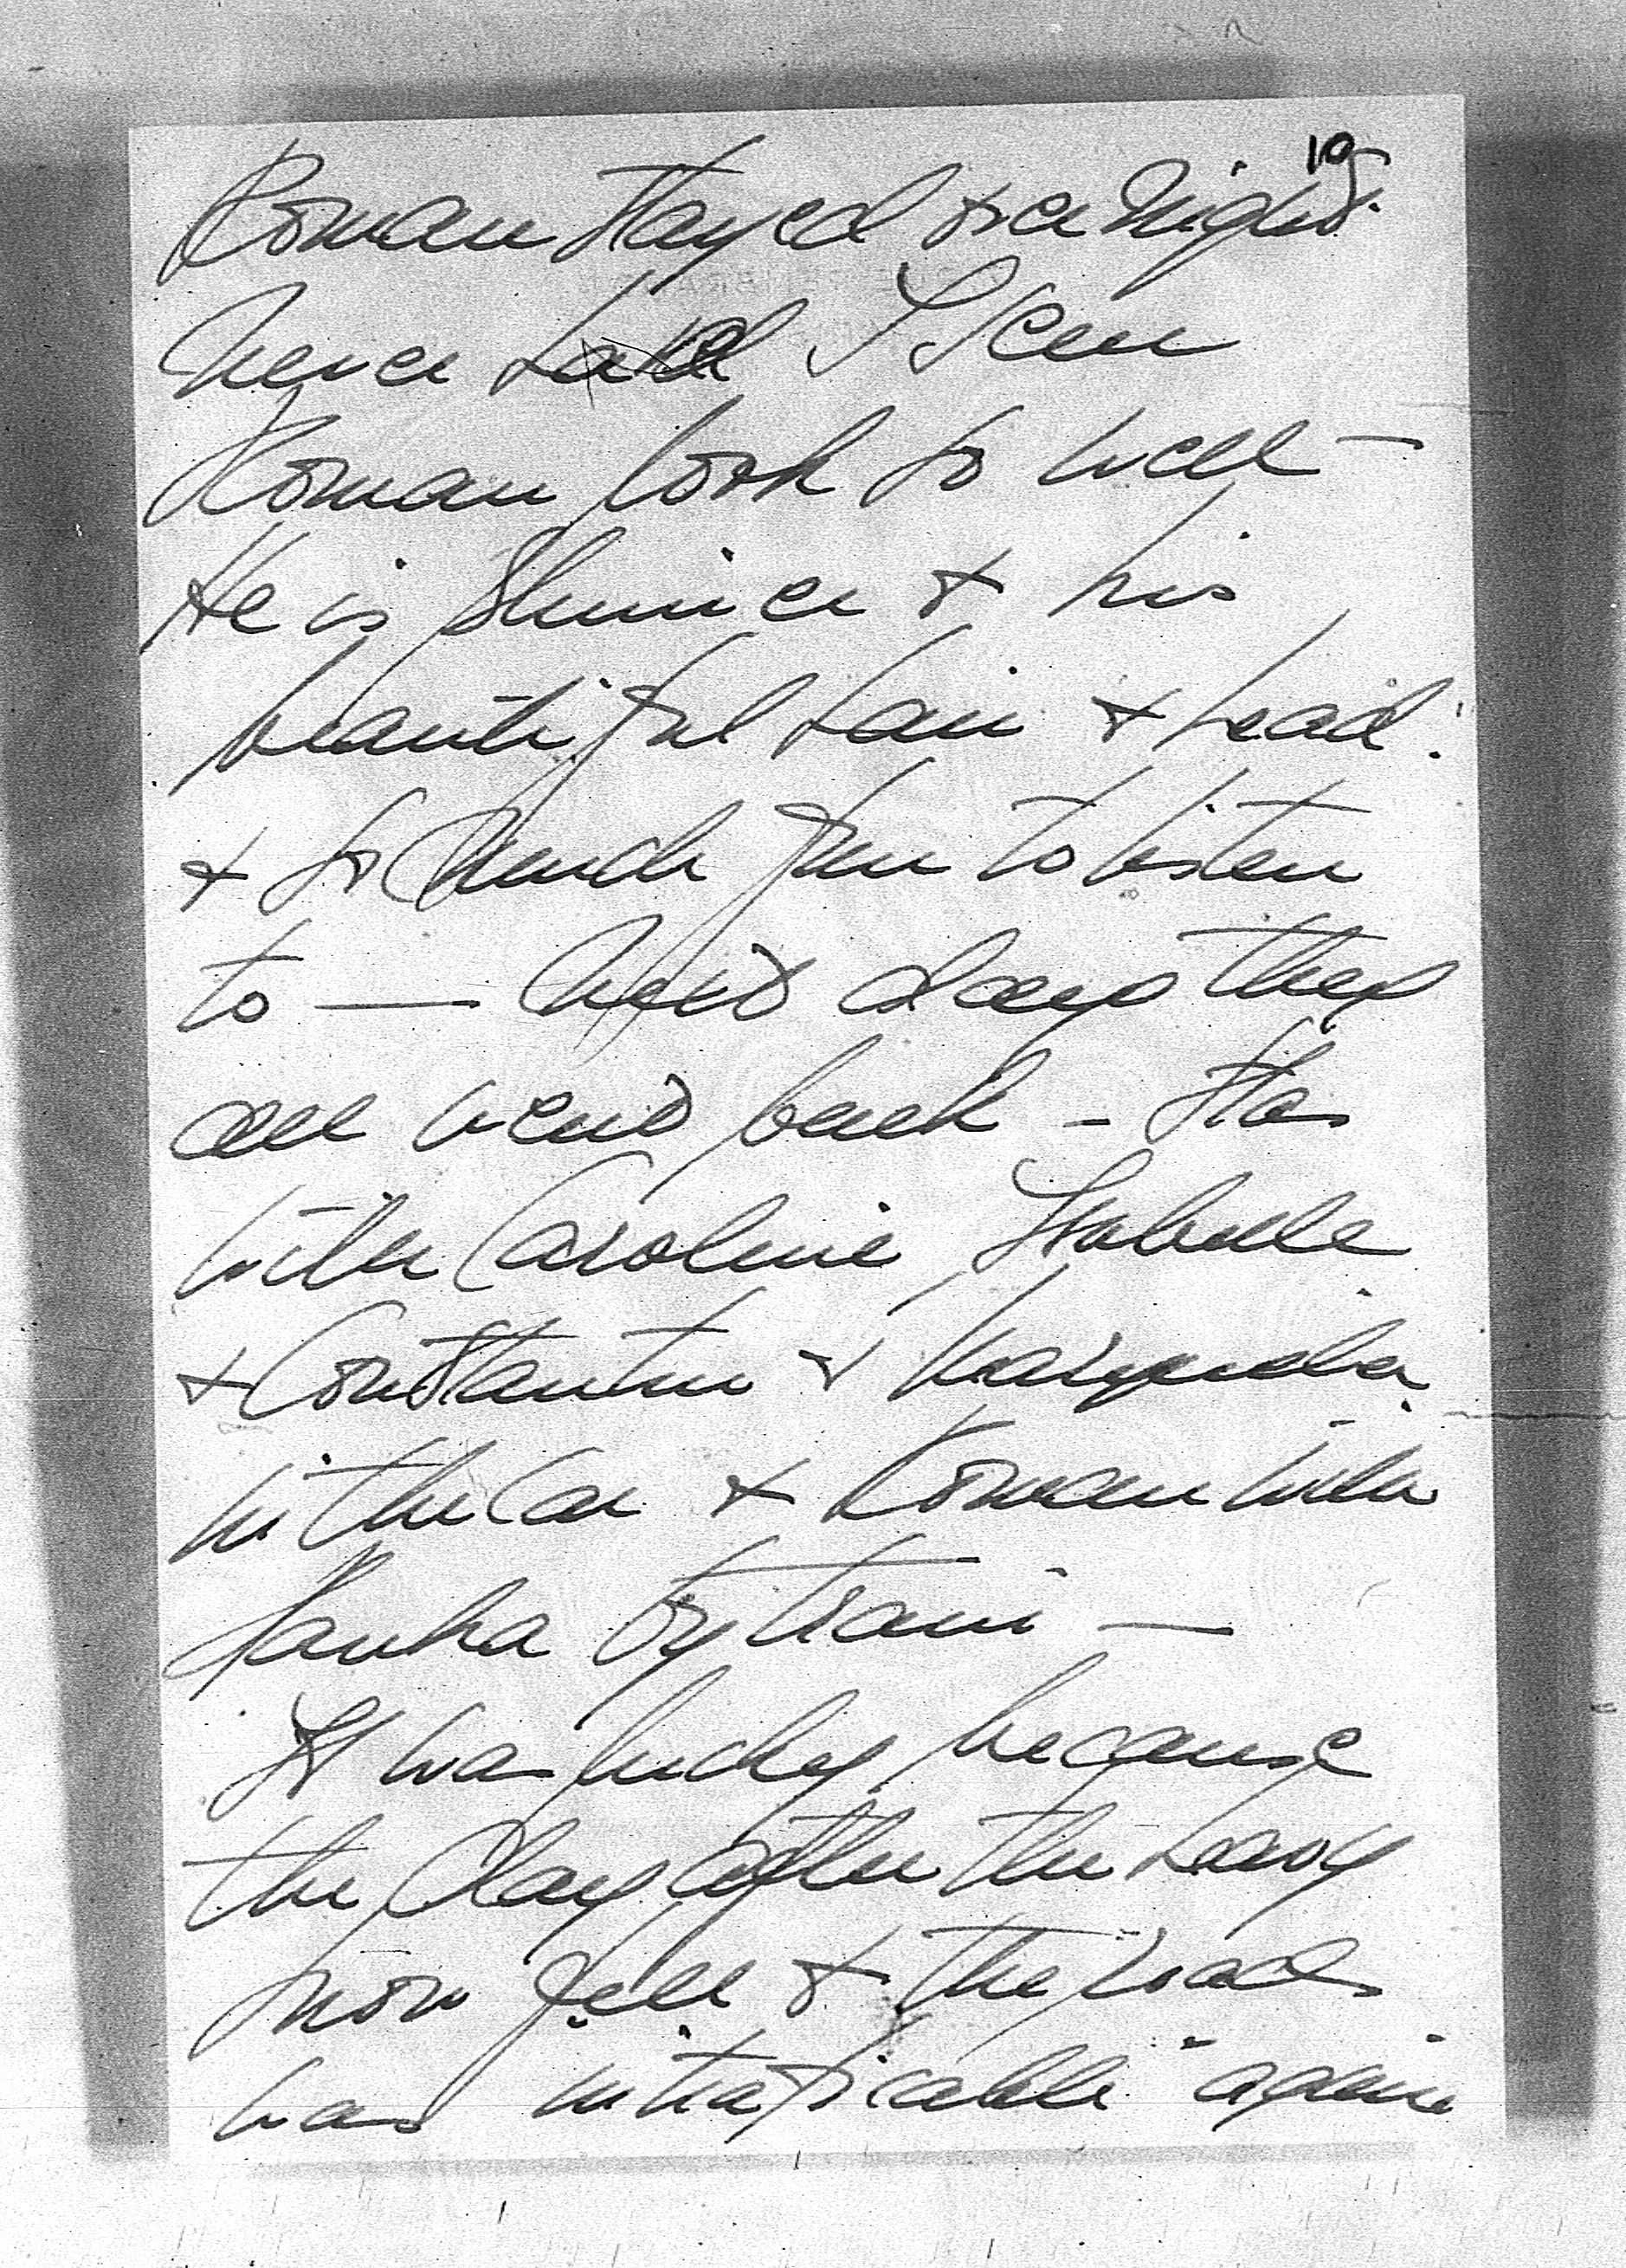 10
Roman stayed the night.
Never had I seen
Roman look so well —
He is slimmer & his
beautiful hair & head
& so much fun to listen
to — Next day they
all went back - Stas
with Caroline, Isabelle
& Constantin &
in the car & Roman with
by train —
It was lucky because
the day after the heavy
snow fell & the road
was again